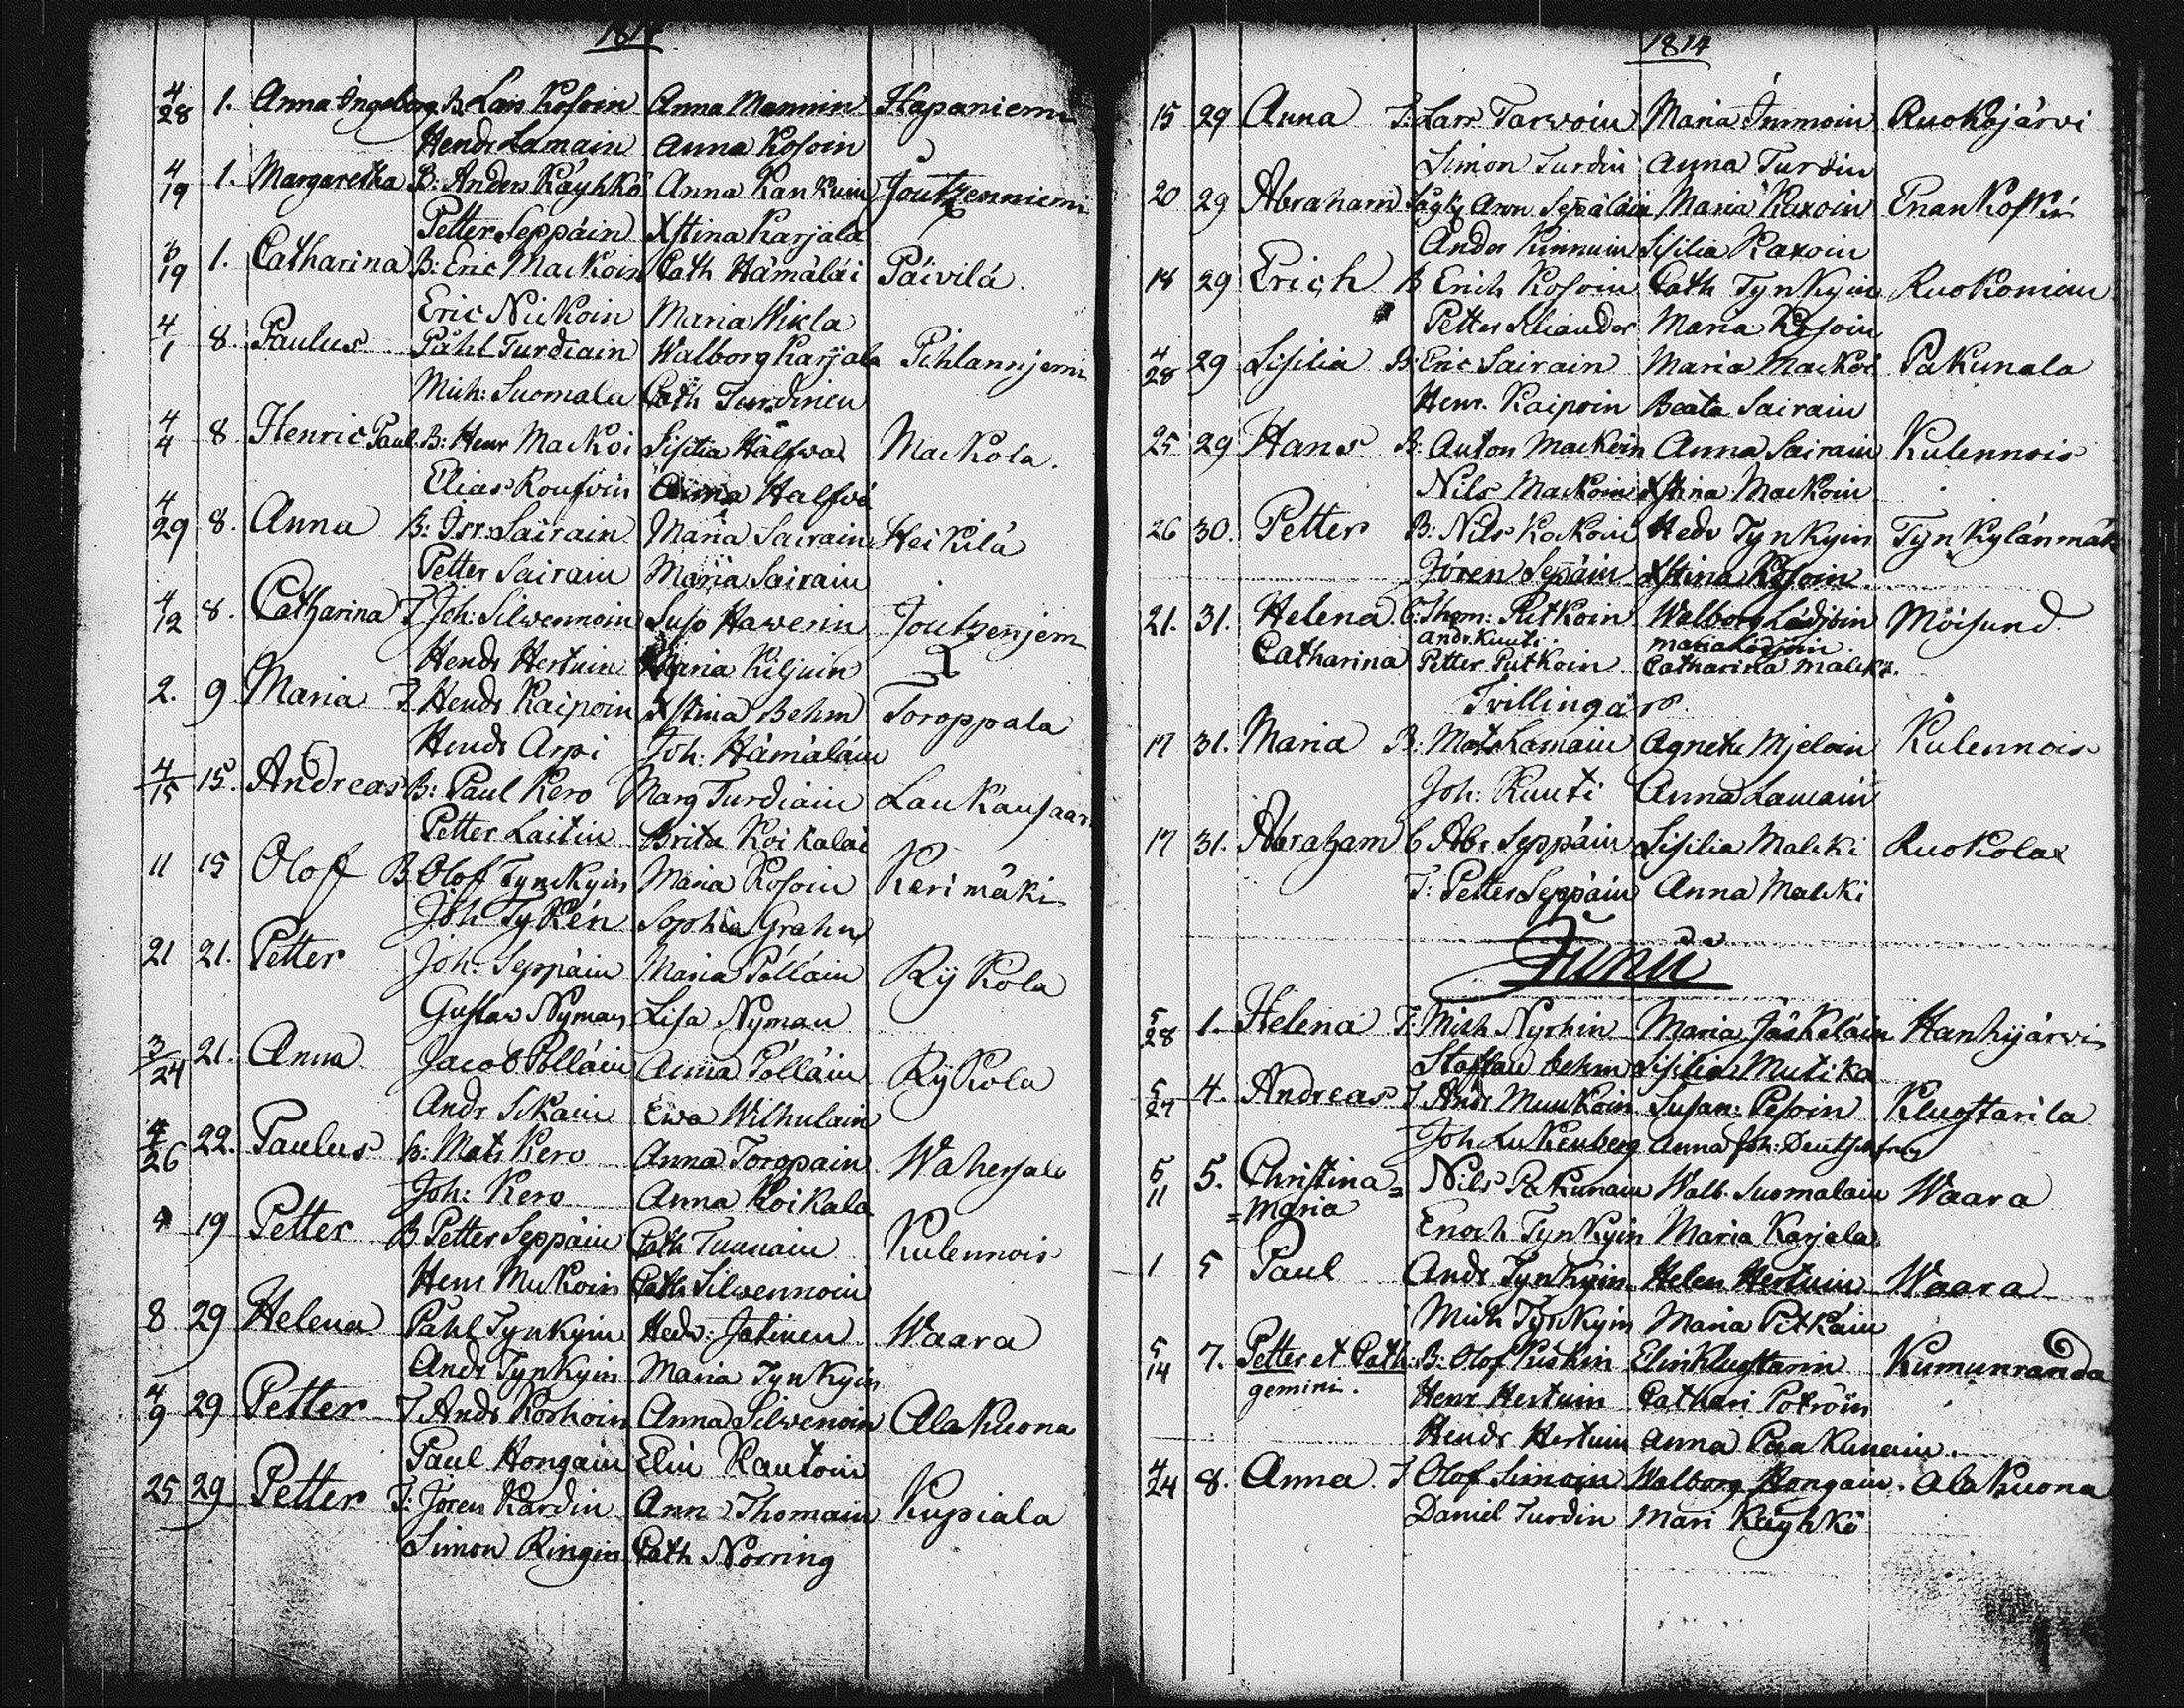 1814
4/28 1. Anna Ingeborg B. Lars Kosoin Anna Mannin Hapaniemi
Hendr Lamain Anna Kosoin
4/19 1. Margaretha B: Anders Käyhkö Anna Kankuin Joutzenniemi
Petter Seppäin Xstina Karjala
3/19 1. Catharina B: Eric Mackoin Cath Hämäläi Päivilä.
Eric Nickoin Maria Wikla
4/1 8. Paulus Påhl Turdiain Walborg Karjala Pihlannjemi
Mich: Suomala Cath Turdinen
4/4 8. Henric Paul B: Henr Mackoi Sisilia Hälfwä Mackola.
Elias Roufvin Anna Halfvä
4/29 8. Anna B: Isr: Sairain Maria Sairain Heikilä
Petter Sairain Maria Sairain
4/12 8. Catharina T Joh: Silwennoin Suso Hawerin Joutzenjem
Hendr Hertuin Maria Kiljuin
2. 9 Maria T Hendr Kaipoin Xstina Behm Toroppala
Hendr Arpi Joh: Hämäläin
4/15 15. Andreas B: Paul Kero Marg Turdiain Laukausaari
Petter Laitin Brita Koikalai
11 15 Olof B Olof Tynckyin Maria Kosoin Kerimäki
Joh Tykén Sophia Grahn
21 21. Petter Joh: Seppäin Maria Pölläin Rÿkola
Gustav Nyman Lisa Nyman
3/24 21. Anna Jacob Pölläin Anna Pölläin Rÿkola
Andr Sikain Ewa Wilhulain
4/26 22. Paulus B: Mats Kero Anna Toropain Wahersalo
Joh: Kero Anna Koikala
4 19 Petter B Petter Seppäin Cath Tuunain Kulennois
Henr Mukoin Cath Silwennoin
8 29 Helena Påhl Tynkyin Hedv: Jatinen Waara
Andr Tynkyin Maria Tynkyin
4/9 29 Petter T Andr Korhoin Anna Silwenoin Alakuona
Paul Hongain Elin Rautoin
25 29 Petter T: Jören Kardin Ann Thomain Kupiala
Simon Ringin Cath Norring
1814
15 29 Anna T: Lars Tarwoin Maria Immoin Ruokojärvi
Simon Turdin Anna Turdin
20 29 Abraham Aron Sepäläin Maria Kaxoin Enankoski
Ander Kinnuin Sisilia Kaxoin
14 29 Erich B Erich Kosoin Cath Tynkyin Ruokoniem
Petter Maria Kosoin
4/28 29 Sisilia B: Eric Sairain Maria Mackoi Pakunala
Henr. Kaipoin Beata Sairain
25 29 Hans B: Anton Mackoin Anna Sairain Kulennois
Nils Mackoin Xstina Mackoin
26 30. Petter B: Nils Kockoin Hedv Tynkyin Tynkylänmäk
Jören Sepäin Xstina Kosoin
21. 31. Helena C: Thom: Putkoin Walborg Lödjöin Möisund
Andr. Kuuti. Maria Lödjöin.
Catharina Petter Putkoin Catharina Malcki.
Tvillingar
17 31. Maria B: Mats Lamain Agneta Mjeloin Kulennois
Joh: Kuuti Anna Lamain
17 31. Abraham C Abr Seppäin Sisilia Malcki Ruokola
T: Petter Seppäin Anna Malcki
Junii
5/28 1. Helena T: Mich Nyrhin Maria Jäskeläin Hanhijärvi
Staffan Behm Sisilia Mutika
5/27 4. Andreas T Andr Muukoin Susan: Pesoin Klugstarila
Joh Lukenberg Anna Joh:
5/11 5. Christina= Nils Pakunain Walb. Suomalain Waara
=Maria
Enoch Tynkyin Maria Karjala
1 5 Paul Andr Tynkyin Helen Hertuin Waara
Mich Tynkyin Maria Pitkäin
5/14 7. Petter et Cath: B: Olof Kuskin Elin Klugstarin Kumunranda
gemini. Henr Hertuin Cathari Poträin
Hendr Hertuin Anna Paakunain.
4/24 8. Anna. T Olof Simoin Walborg Hongain. Alakuona
Daniel Turdin Mari Käyhkö